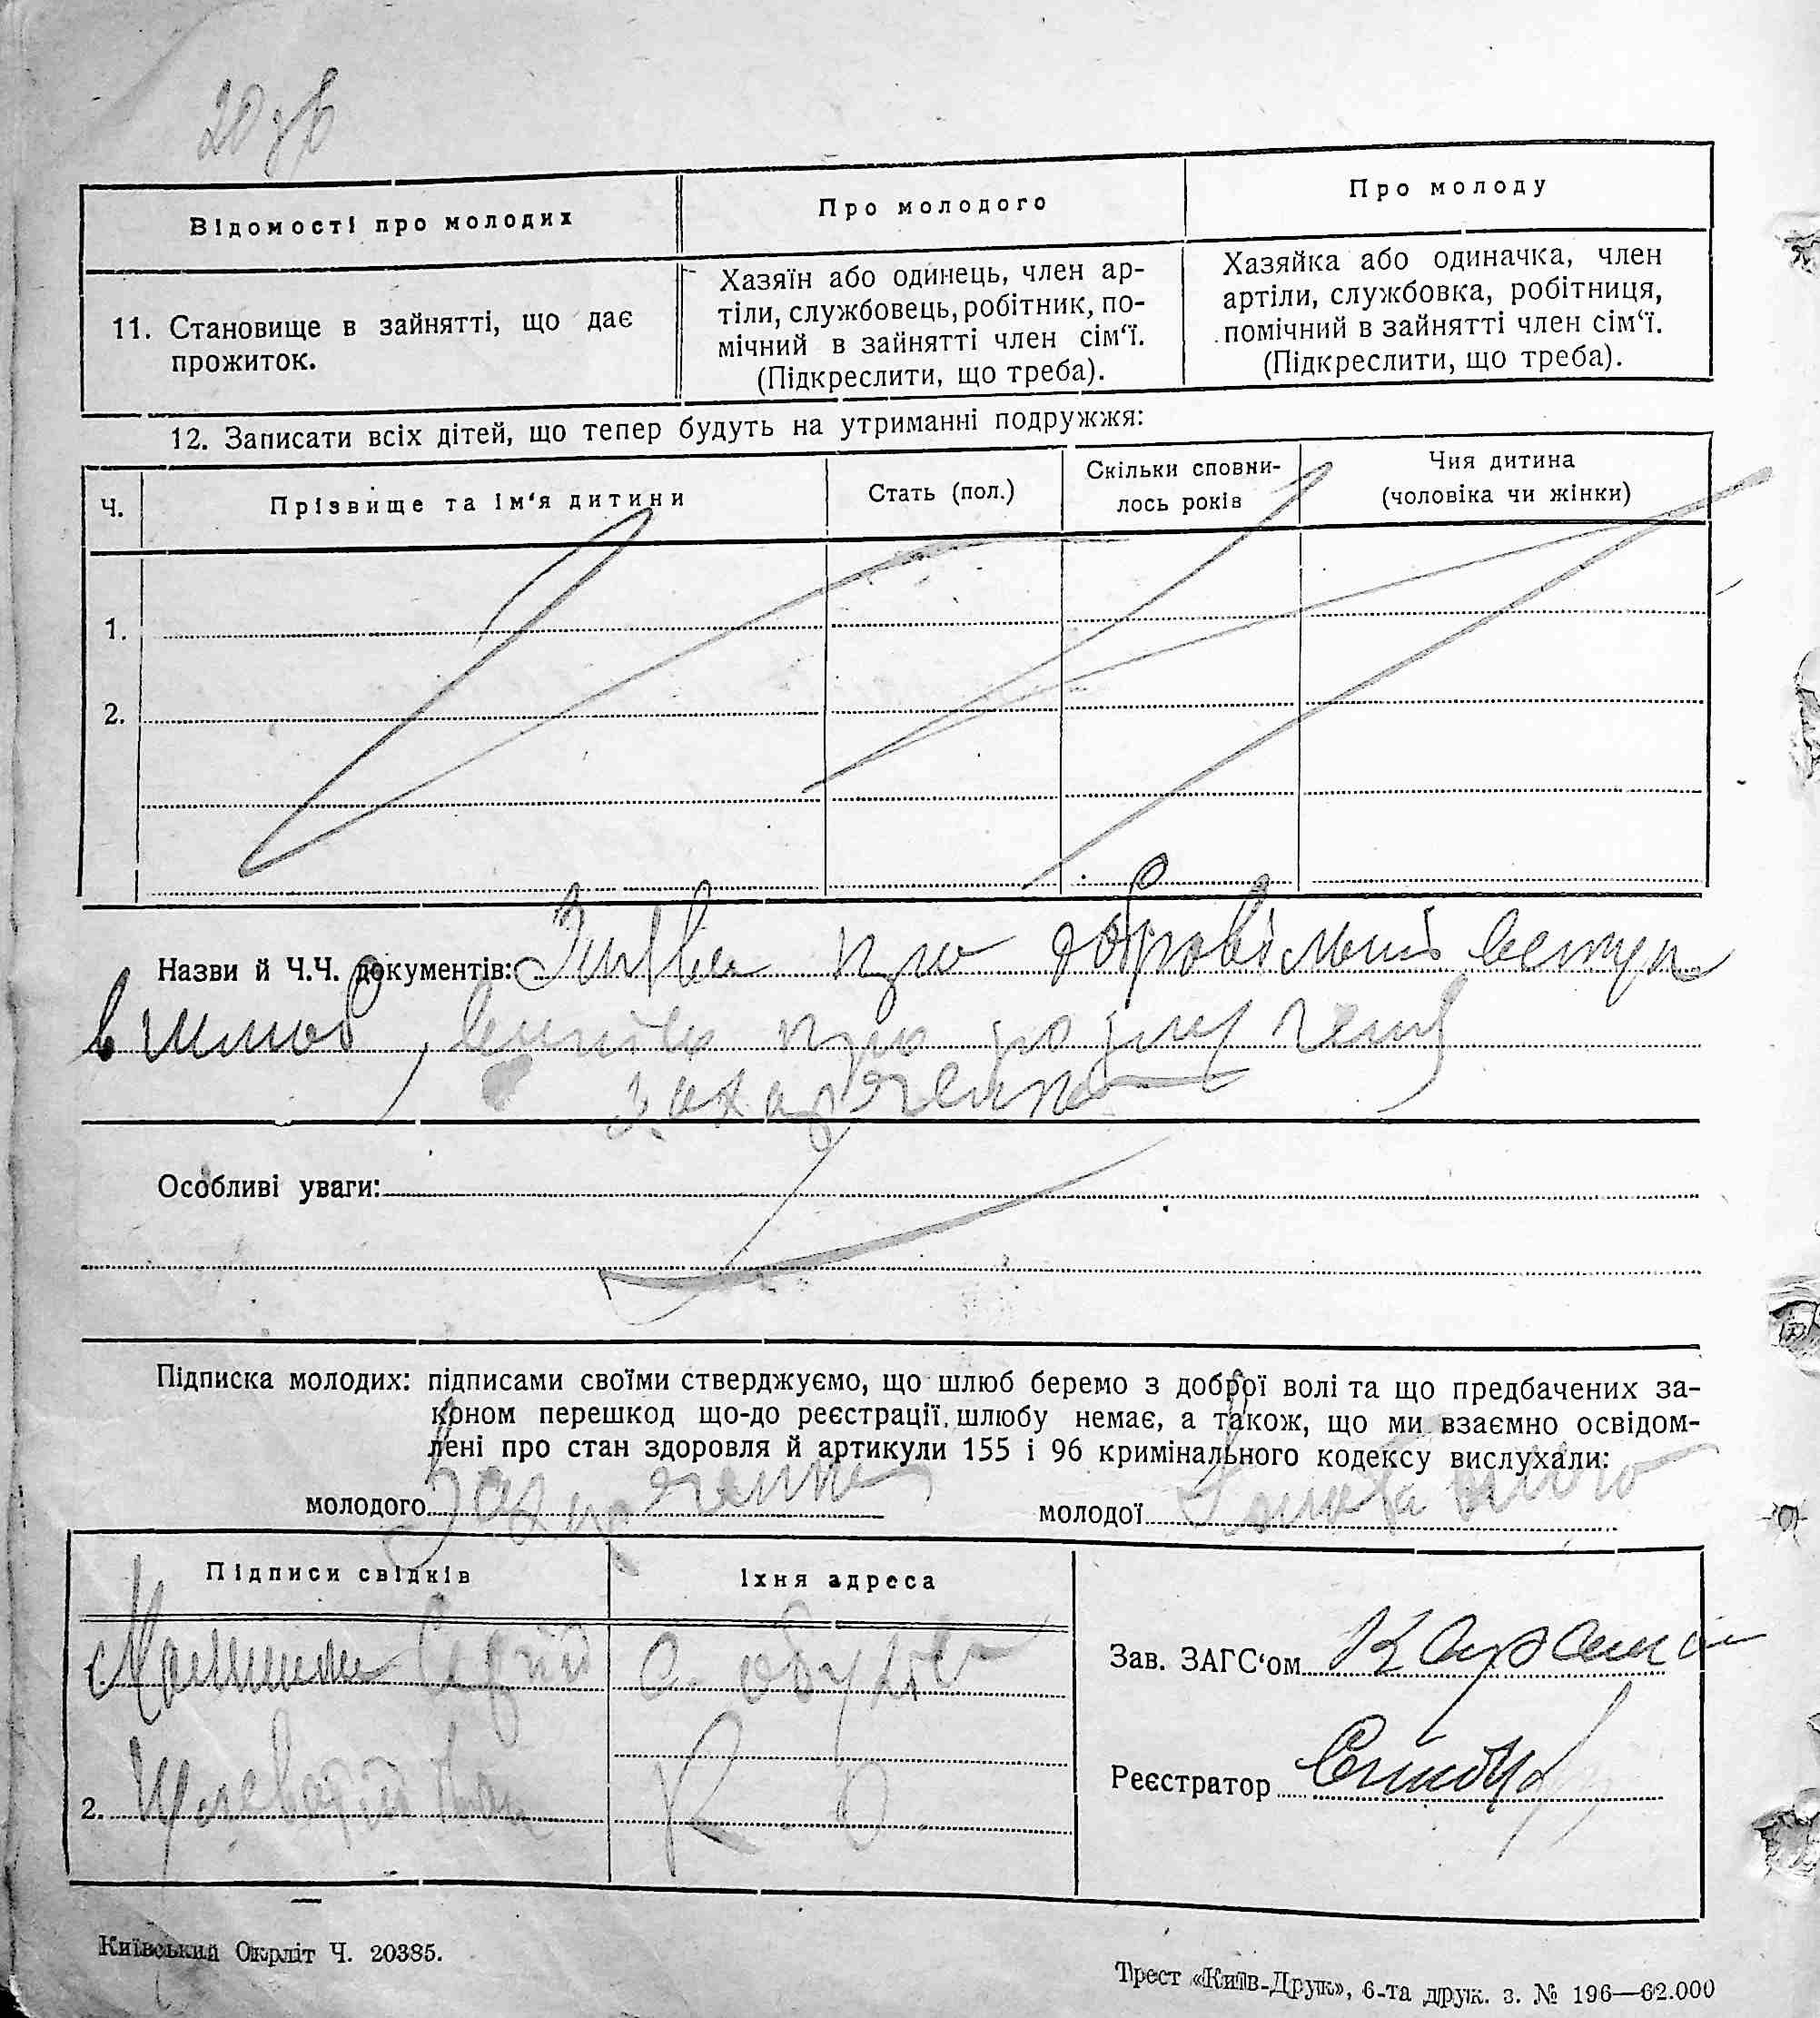 Відомості про молодих
Про молодого
Про молоду
11. Становище в зайнятті, що дає
прожиток.
Хазяїн або одинець, член ар-
тіли, службовець, робітник, по-
мічний в зайнятті член сім‘ї.
(Підкреслити, що треба).
Хазяйка або одиначка, член
артіли, службовка, робітниця,
помічний в зайнятті член сім‘ї.
(Підкреслити, що треба).
12. Записати всіх дітей, що тепер будуть на утриманні подружжя:
Ч.
Прізвище та ім‘я дитини
Стать (пол.)
Скільки сповни-
лось років
Чия дитина
(чоловіка чи жінки)
1.
2.
Назви й Ч.Ч. документів: Заява про добровільний вступ
в шлюб, про розлучення
Захарченко
Особливі уваги:
Підписка молодих: підписами своїми стверджуємо, що шлюб беремо з доброї волі та що предбачених за-
коном перешкод що-до реєстрації шлюбу немає, а також, що ми взаємно освідом-
лені про стан здоровля й артикули 155 і 96 кримінального кодексу вислухали:
молодого Захарченко
молодої
Підписи свідків
Їхня адреса
Сергій
с.
2.
Зав. ЗАГС‘ом
Реєстратор
Київський Окрліт Ч. 20385.
Трест «Київ-Друк», 6-та друк. з. № 196—62.000